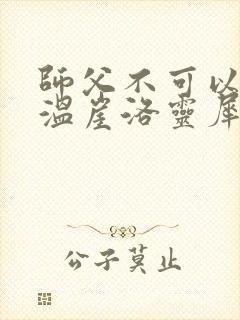 師父不可以
溫崖洛靈犀
公子莫止